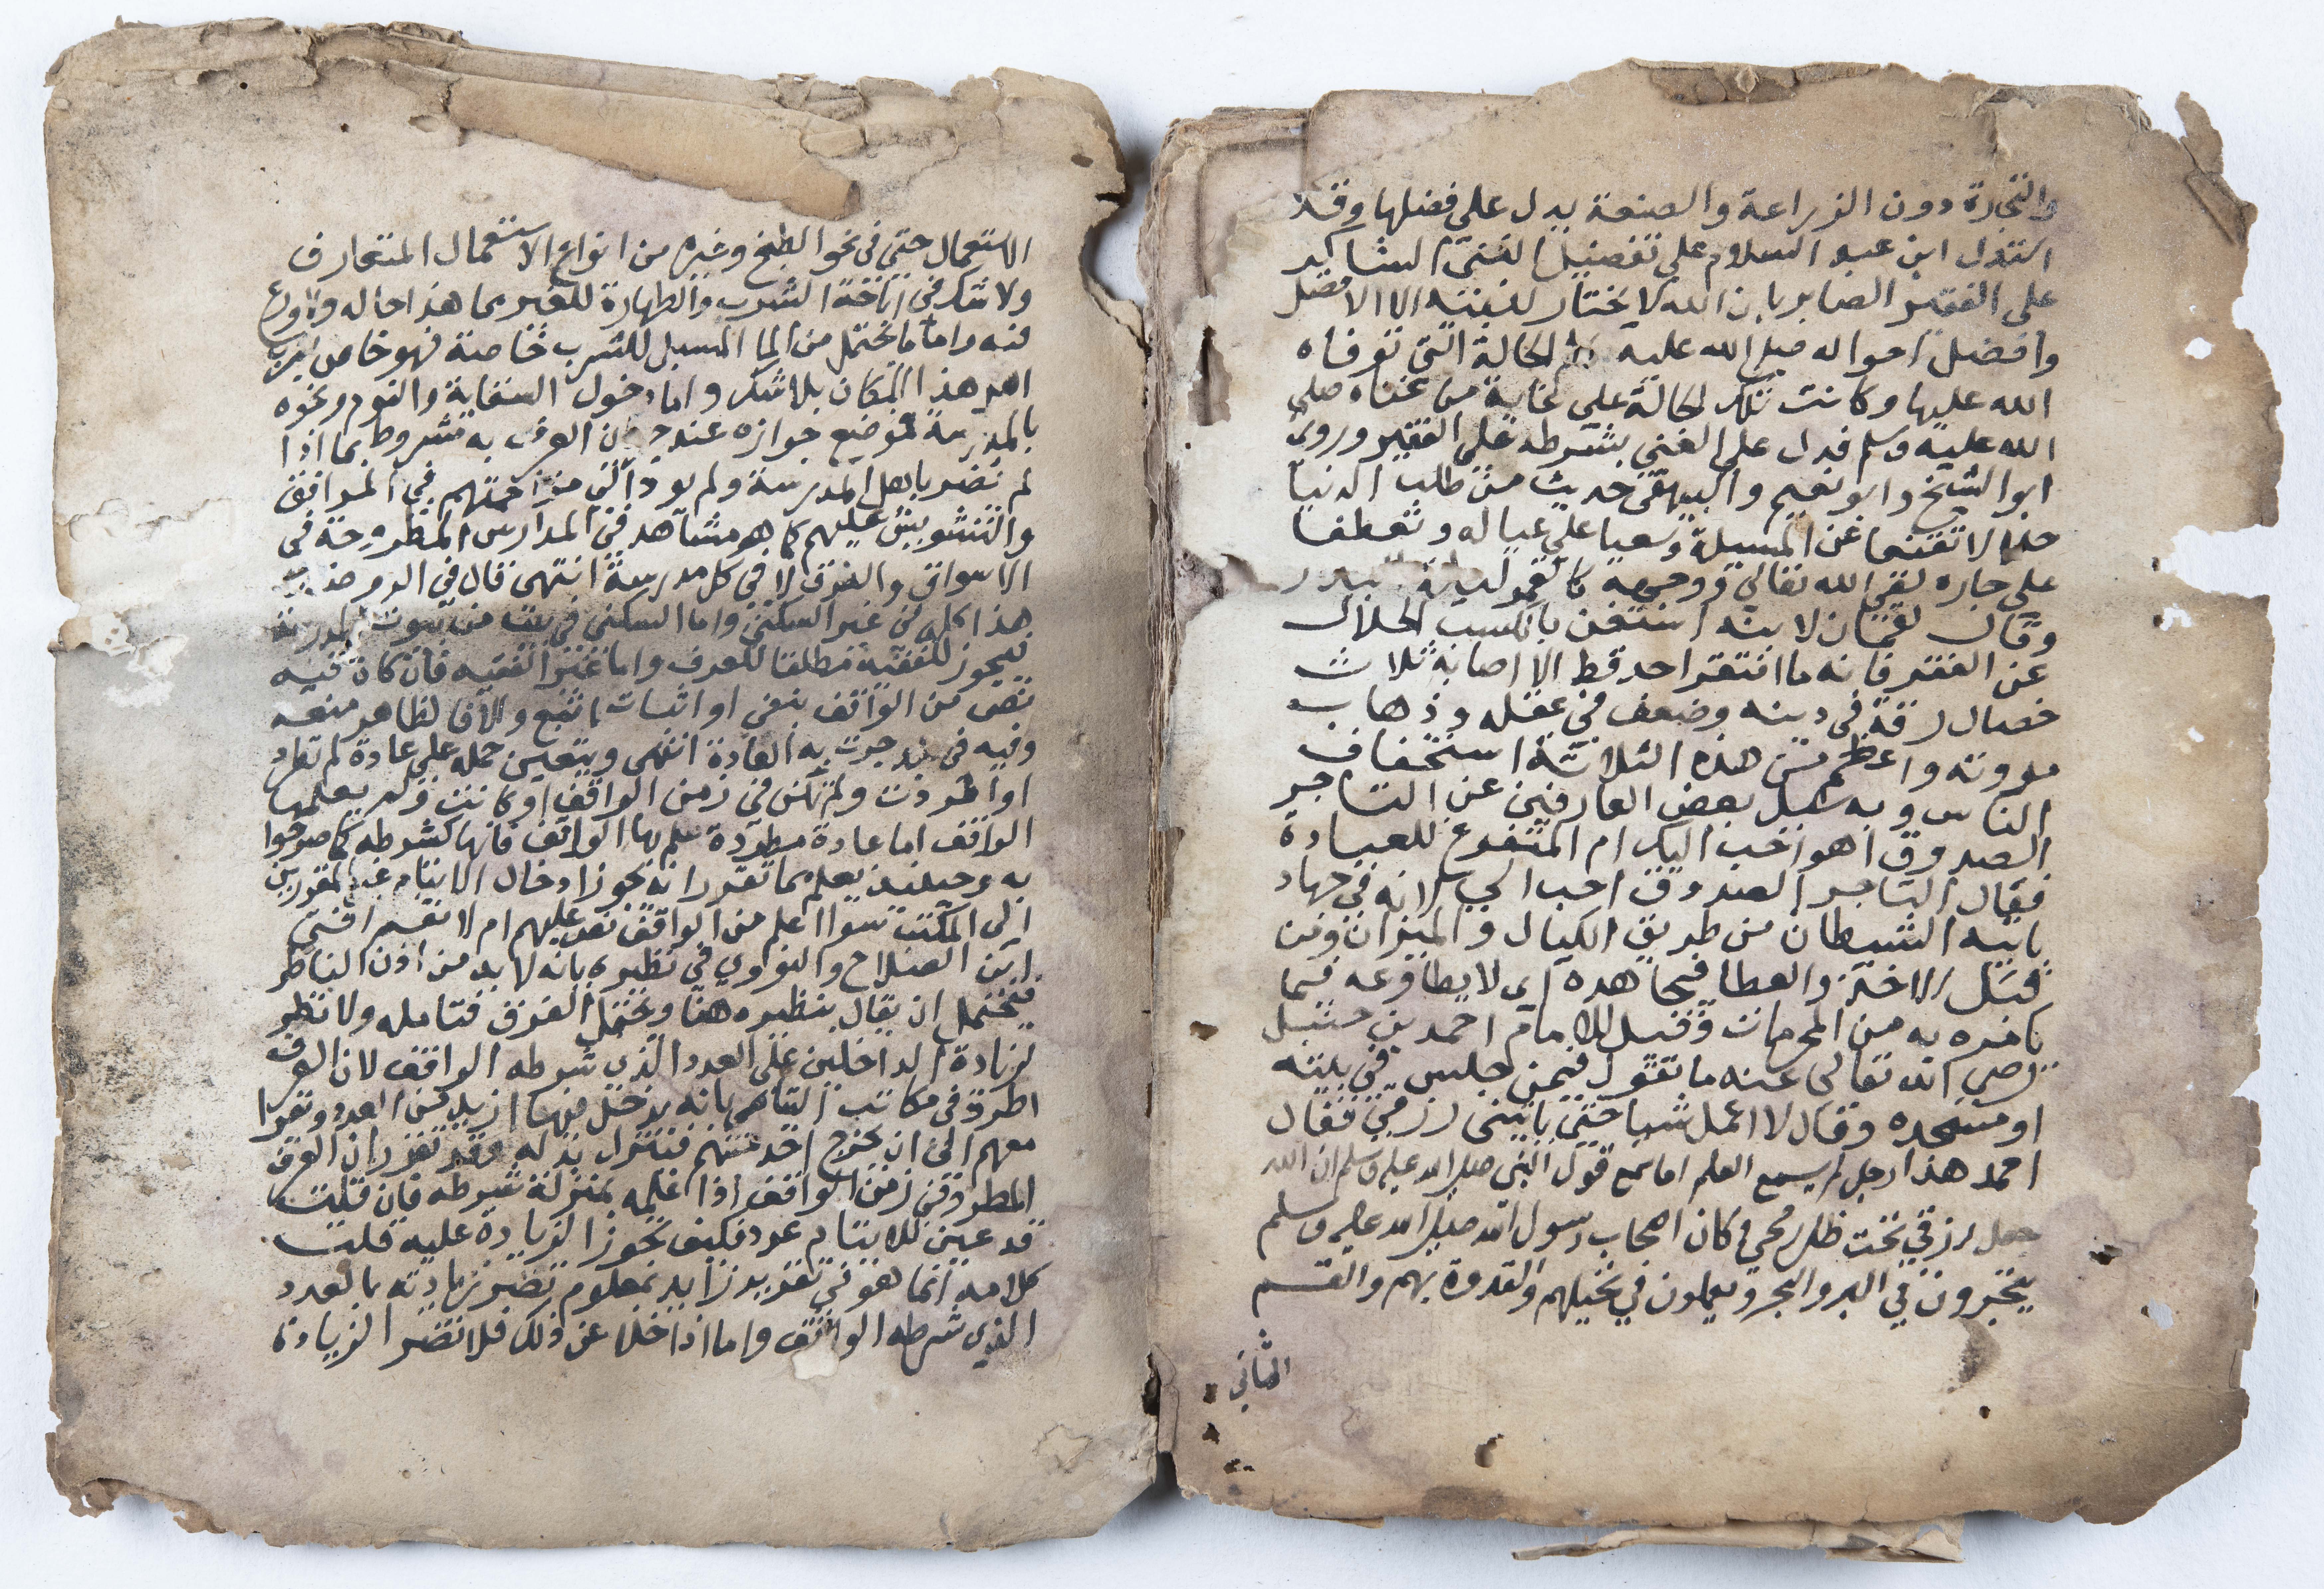 والتجارة دون الزراعة والصنعة يدل علي فضلها وقد
استدل ابن عبد السلام علي تفضيل الغني الشاكر
علي الفقير الصابر بان الله لا يختار لنبيه الا الافضل
وافضل احواله صلي الله عليه الحالة التي توفاه
الله عليها وكانت تلك الحالة علي غاية من غناه صلي
الله عليه وسلم فدل علي الغني بشرطه علي الفقير وروي
ابو الشيخ وابو نعيم والبيهقي حديث من طلب الدنيا
حلالا تعففا عن المسيلة وسعيا علي عياله وتعطفا
علي جاره لقي الله تعالي ووجهه كالقمر ليلة البدر
وقال لقمان لابنه استغن بالكسب الحلال
عن الفقر فانه ما افتقر احد قط الا اصابه ثلاث
خصال رقة في دينه وضعف في عقله وذهاب
مروته واعظم من هذه الثلاثة استخفاف
الناس وبه سيل بعض العارفين عن التاجر
الصدوق اهو احب اليك ام المتفرغ للعبادة
فقال التاجر الصدوق احب الي لانه في جهاد
ياتيه الشيطان من طريق الكيال والميزان ومن
قبل الاخذ والعطا فيجاهده اي لا يطاوعه فيما
يامره به من المحرمات وقيل للامام احمد بن حنبل
رضي الله تعالي عنه ما تقول فيمن جلس في بيته
او مسجده وقال لا اعمل شيا حتي ياتيني رزقي فقال
احمد هذا رجل لم يسمع العلم اما سمع قول النبي صلي الله عليه وسلم ان الله
جعل رزقي تحت ظل رمحي وكان اصحاب رسول الله صلي الله عليه وسلم
يتجرون في البر والبحر ويعملون في نخيلهم والقدوة بهم والقسم
الثاني
الاستعمال حتي في نحو الطبخ وغيره من انواع الاستعمال المتعارف
ولا شك في اباحة الشرب والطهارة للغير بما هذا حاله ولا ورع
فيه واما ما يحتمل من الما المسبل للشرب خاصة فهو خاص بشرب
اهل هذا المكان بلا شك واما دخول السقاية والنوم ونحوه
بالمدرسة فموضع جوازه عند جريان العرف به مشروط بما اذا
لم يضر باهل المدرسة ولم يود الي مزاحمتهم في المرافق
والتشويش عليهم كما هو مشاهد في المدارس المطروحة في
الاسواق والفرق لا في كل مدرسة انتهي قال في الروضة
هذا كله في غير السكني واما السكني في بيت من بيوت المدرسة
فيجوز للفقيه مطلقا للعرف واما غير الفقيه فان كان فيه
نص من الواقف بنفي او اثبات اتبع والا فالظاهر منعه
وفيه في بلد جرت به العادة انتهي ويتعين حمله علي عادة لم تطرد
او اطردت ولم تكن في زمن الواقف او كانت ولم يعلمها
الواقف اما عادة مطردة علم بها الواقف فانها كشرطه كما صرحوا
به وحينيذ يعلم مما تقرر انه يجوز ادخال الايتام غير المقررين
الي المكتب سوا اعلم من الواقف نص عليهم ام لا نعم افتي
ابن الصلاح والنووي في نظيره بانه لها بد من اذن الناظر
فيحتمل ان يقال بنظيره هنا ويحتمل الفرق فتامله ولا نظر
لزيادة الداخلين علي العدد الذي شرطه الواقف لان العرف
اطرد في مكاتب اليتامي بانه يدخل فيها ازيد من العدد ويقرا
معهم الي ان يخرج احد منهم فينزل بدله وقد تقرر ان العرف
المطرد في زمن الواقف اذا علمه بمنزلة شرطه فان قلت
قد عين للايتام عدد فكيف تجوز الزيادة عليه قلت
كلامه انما هو في تقرير زايد بمعلوم تضر زيادته بالعدد
الذي شرطه الواقف واما اذا خلا عن ذلك فلا تضر الزيادة